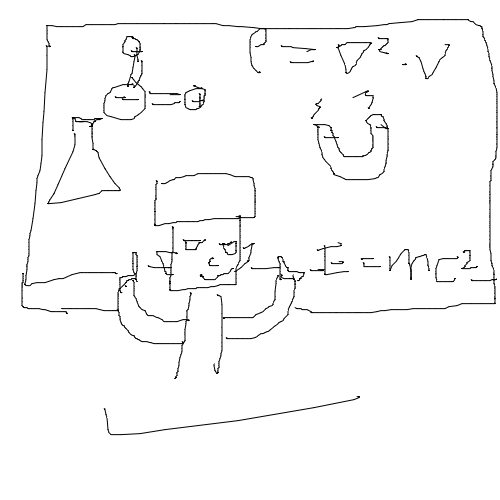 = ∇² · V
E = mc²